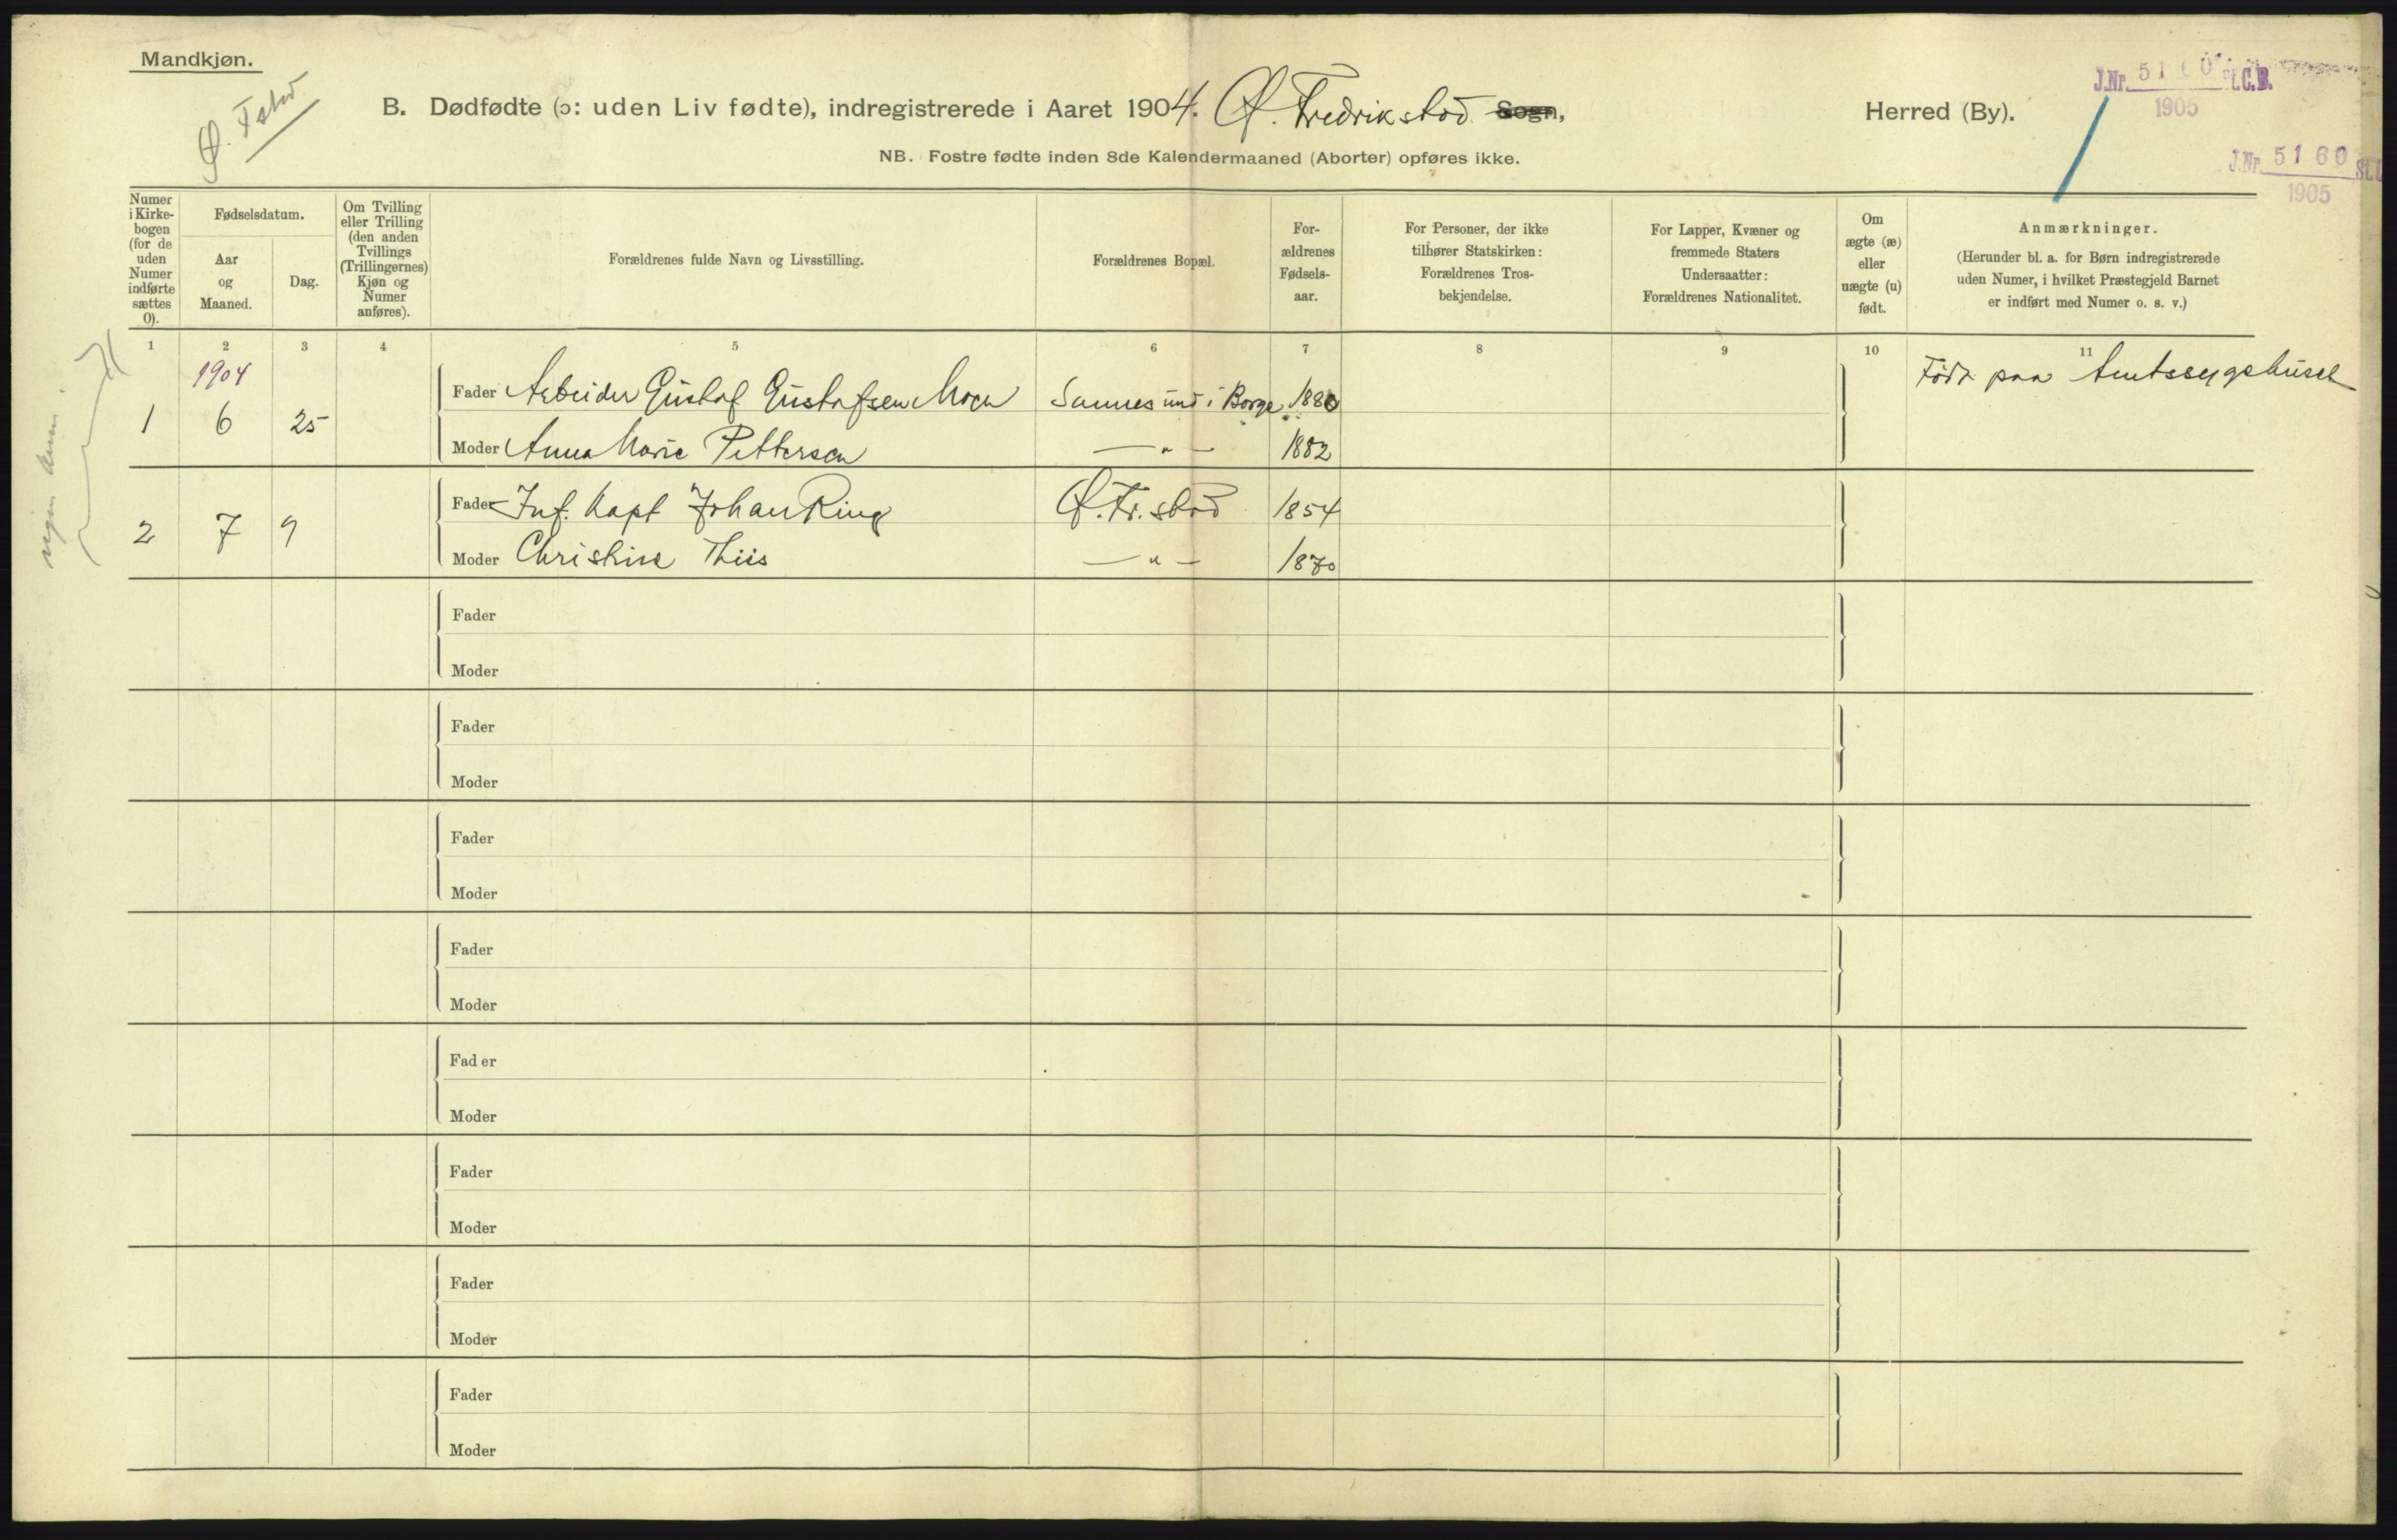 Mandkjøn.
Ø. Fstad
B. Dødfødte (ɔ: uden Liv fødte), indregistrerede i Aaret 1904. Ø. Fredrikstad Sogn, Herred (By).
NB. Fostre fødte inden 8de Kalendermaaned (Aborter) opføres ikke.
J.Nr. 51 0 St.C.B.
1905
J.Nr. 5160 St.C
1905
Numer i Kirke-bogen (for de uden Numer indførte sættes 0).
Fødselsdatum.
Aar og Maaned.
Dag.
Om Tvilling eller Trilling (den anden Tvillings (Trillingernes) Kjøn og Numer anføres).
Forældrenes fulde Navn og Livsstilling.
Forældrenes Bopæl.
For-ældrenes Fødsels-aar.
For Personer, der ikke tilhører Statskirken: Forældrenes Tros-bekjendelse.
For Lapper, Kvæner og fremmede Staters Undersaatter: Forældrenes Nationalitet.
Om ægte (æ) eller uægte (u) født.
Anmærkninger.
(Herunder bl. a. for Børn indregistrerede uden Numer, i hvilket Præstegjeld Barnet er indført med Numer o. s. v.)
1 2 3 4 5 6 7 8 9 10 11
1904
1 6 25
Fader Arbeider Gustaf Gustafsen Moen Sannesund i Borge 1880 Født paa Amtssygehuset
Moder Anna Marie Pettersen —"— 1882
2 7 9
Fader Inf. Kapt Johan Ring Ø. Fr.stad 1854
Moder Christine Thiis —"— 1870
Fader
Moder
Fader
Moder
Fader
Moder
Fader
Moder
Fader
Moder
Fader
Moder
Fader
Moder
Fader
Moder